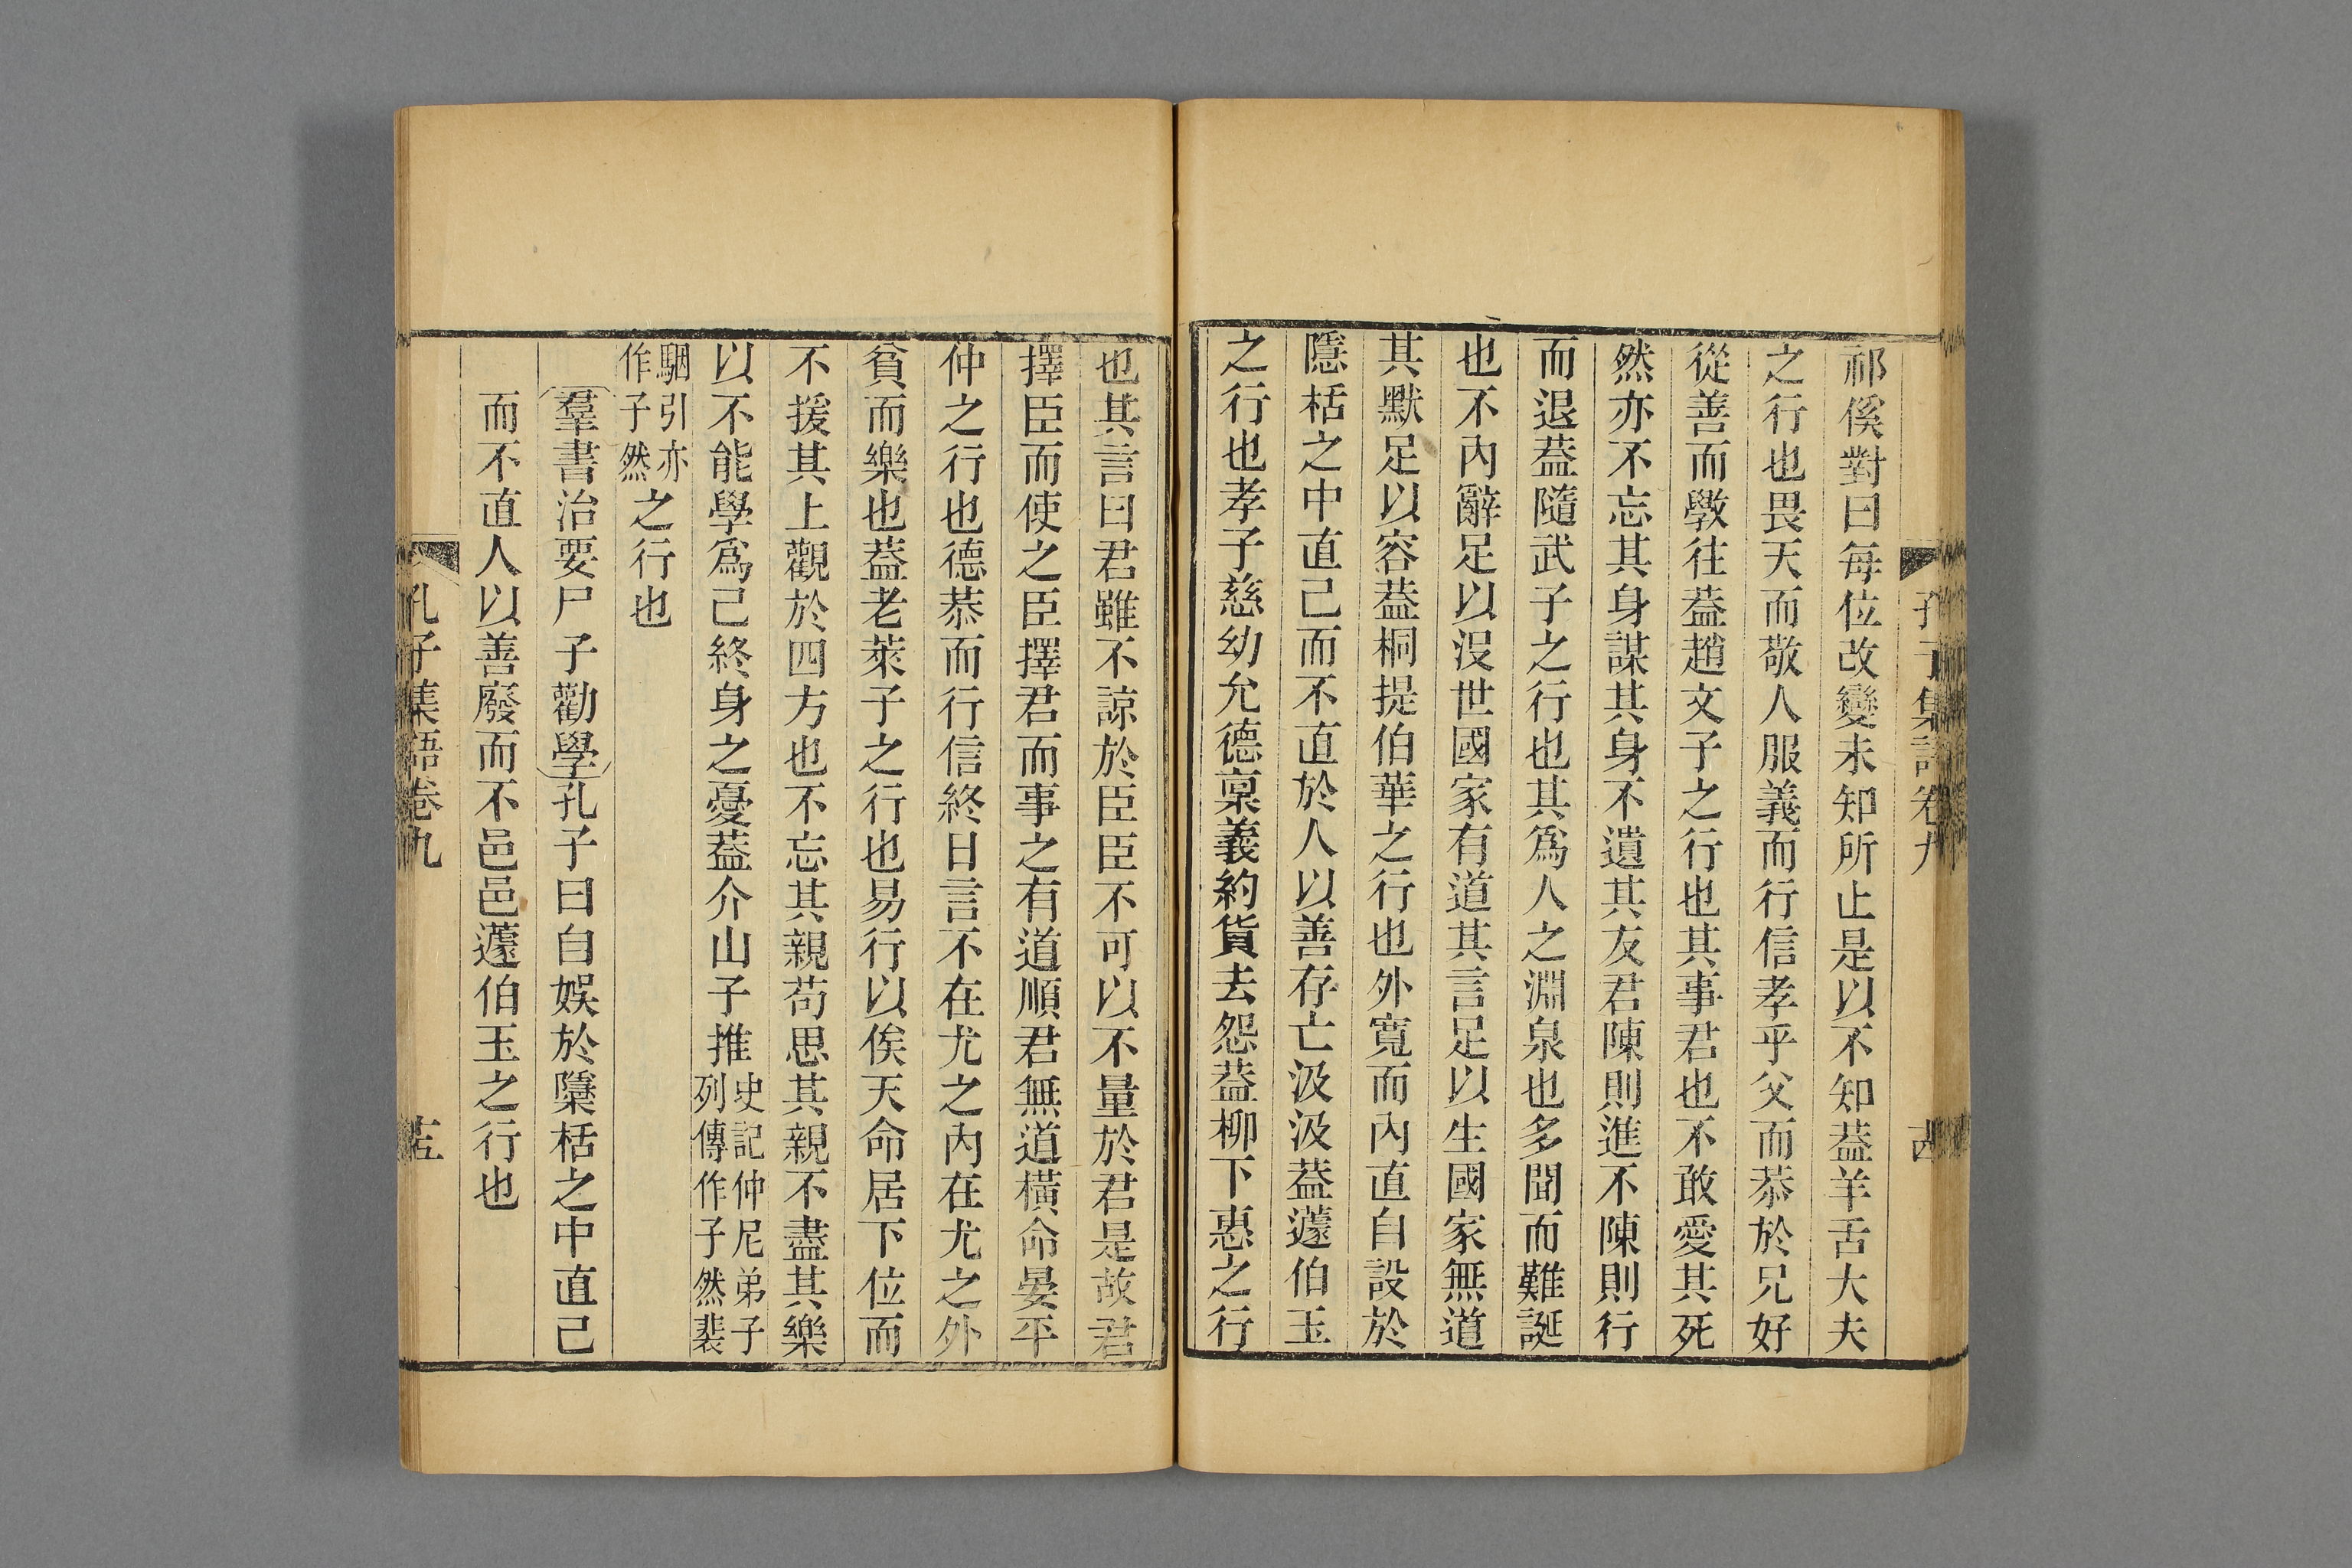 孔子集語卷九
祁傒對曰每位改變未知所止是以不知葢羊舌大夫
之行也畏天而敬人服義而行信孝乎父而恭於兄好
從善而斆往葢趙文子之行也其事君也不敢愛其死
然亦不忘其身謀其身不遺其友君陳則進不陳則行
而退葢隨武子之行也其爲人之淵泉也多聞而難誕
也不內辭足以沒世國家有道其言足以生國家無道
其默足以容葢桐提伯華之行也外寬而內直自設於
隱栝之中直己而不直於人以善存亡汲汲葢蘧伯玉
之行也孝子慈幼允德稟義約貨去怨葢柳下惠之行
也其言曰君雖不諒於臣臣不可以不量於君是故君
擇臣而使之臣擇君而事之有道順君無道橫命晏平
仲之行也德恭而行信終日言不在尤之內在尤之外
貧而樂也葢老萊子之行也易行以俟天命居下位而
不援其上觀於四方也不忘其親苟思其親不盡其樂
以不能學爲己終身之憂葢介山子推史記仲尼弟子列傳作子然裴
駰引亦作子然之行也
羣書治要尸子勸學孔子曰自娛於檃栝之中直己
而不直人以善廢而不邑邑蘧伯玉之行也
孔子集語卷九
十五